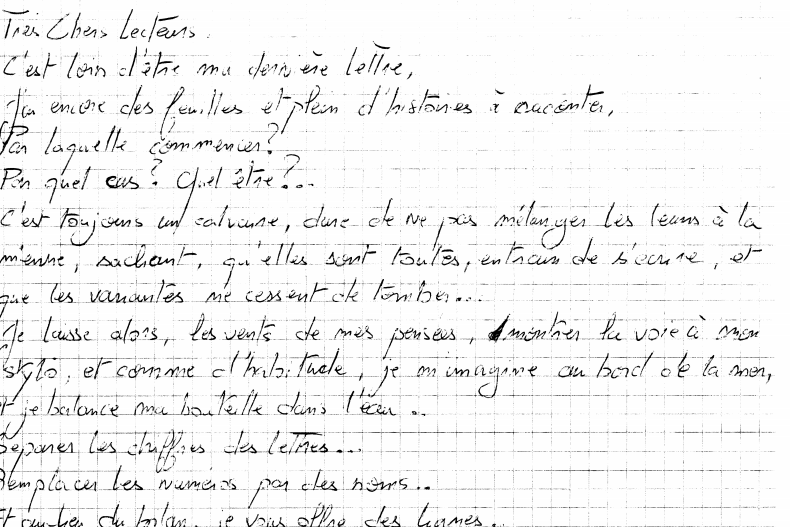 Très Chers Lecteurs.
C'est loin d'être ma dernière lettre,
J'ai encore des feuilles et plein d'histoires à raconter,
Par laquelle commencer?
Par quel cas? Quel être?...
C'est toujours un calvaire, dure de ne pas mélanger les leurs à la
mienne, sachant, qu'elles sont toutes, entrain de s'écrire, et
que les variantes ne cessent de tomber...
Je laisse alors, les vents de mes pensées, montrer la voie à mon
stylo, et comme d'habitude, je m'imagine au bord de la mer,
et je balance ma bouteille dans l'eau...
Séparer les chiffres des lettres...
Remplacer les numéros par des noms..
Et au lieu du bilan, je vous offre des larmes..